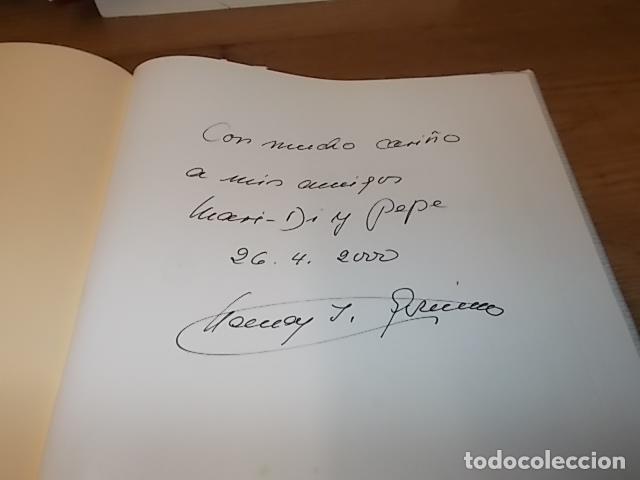 Con mucho cariño
a mis amigos
Mari-Di y Pepe
26.4.2000
todocoleccion